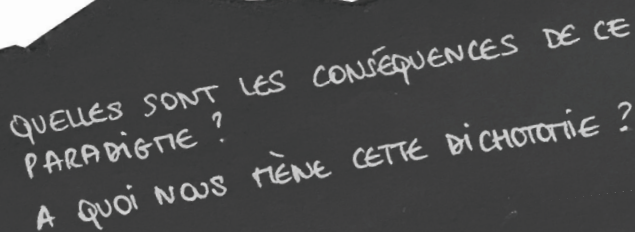 QUELLES SONT LES CONSÉQUENCES DE CE
PARADIGME ?
A QUOI NOUS MÈNE CETTE DICHOTOMIE ?